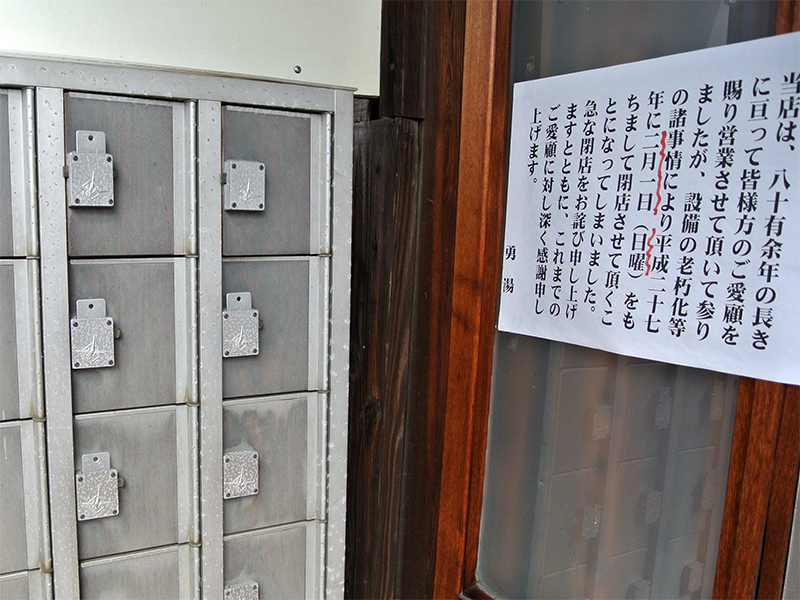 当店は、八十有余年の長き
に亘って皆様方のご愛顧を
賜り営業させて頂いて参り
ましたが、設備の老朽化等
の諸事情により平成二十七
年に二月一日（日曜）をも
ちまして閉店させて頂くこ
とになってしまいました。
急な閉店をお詫び申し上げ
ますとともに、これまでの
ご愛顧に対し深く感謝申し
上げます。
勇湯